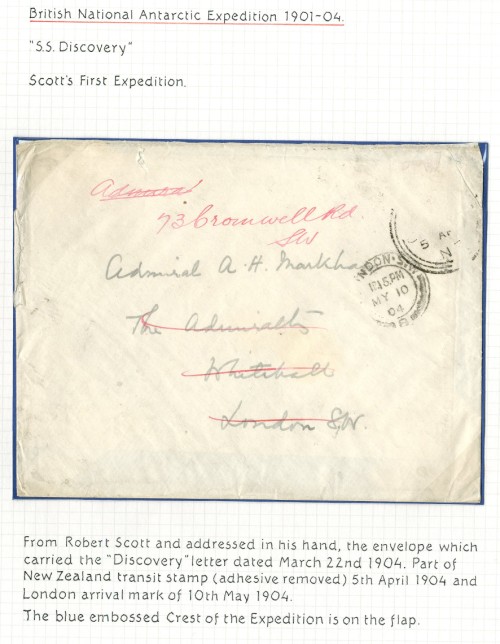 British National Antarctic Expedition 1901-04.
"S.S. Discovery"
Scott's First Expedition.
Admiral
73 Cromwell Rd.
SW
Admiral A. H. Markham
The Admiralty
Whitehall
London S.W.
5 AP
N
LONDON. S.W.
12.15.PM
MY 10
04
From Robert Scott and addressed in his hand, the envelope which
carried the "Discovery" letter dated March 22nd 1904. Part of
New Zealand transit stamp (adhesive removed) 5th April 1904 and
London arrival mark of 10th May 1904.
The blue embossed Crest of the Expedition is on the flap.